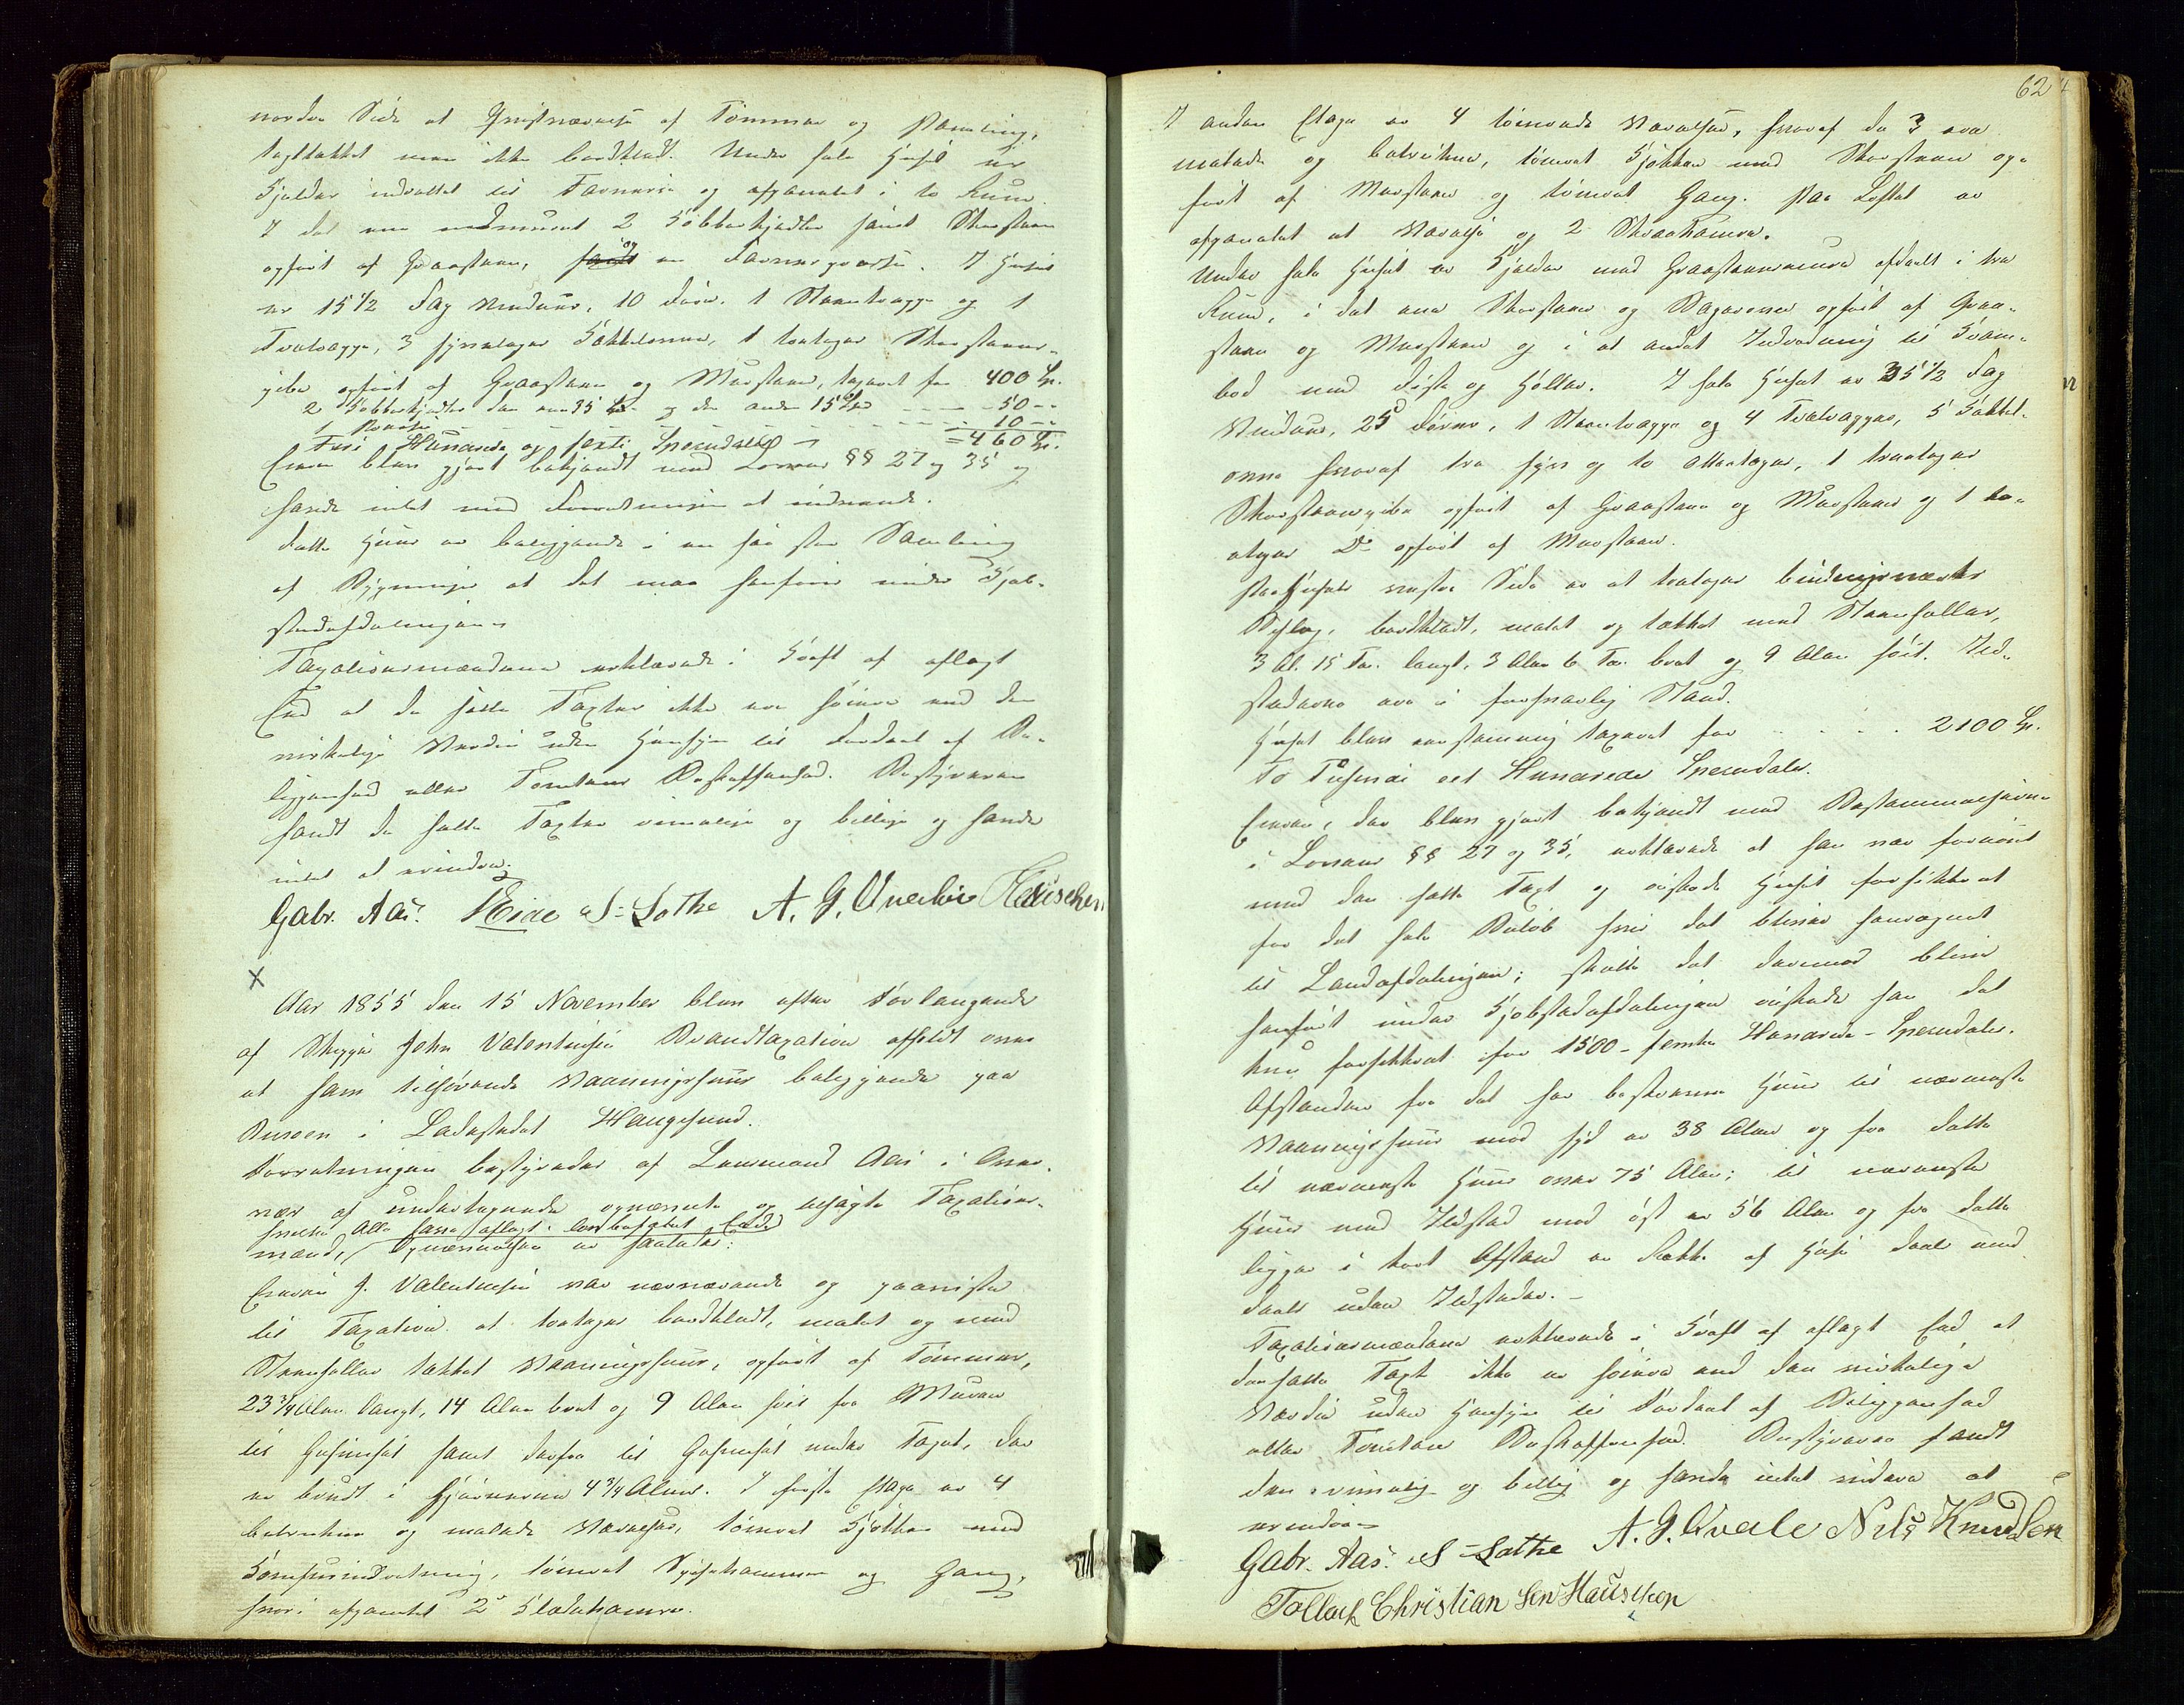 nordre Side et Gristværelse af Tømmer og Paneling,
tegltækket men ikke bordklædt. Under hele Huset er
Kjelder indrettet til Farveri og afpanelet i to Rum.
I det ene indmuret 2 Kobberkjedler samt Skorsteen
opført af Graasteen, og en Farverpresse. I Huset
er 15 1/2 Fag Vinduer, 10 Døre, 1 Steentrappe og 1
Trætrappe, 3 Kakkelovne, 1 toetages Skorsteens-
pibe opført af Graasteen og Muursteen, taxeret for 400 Sp.
2 Kobberkjedler den ene 35 Sp og den anden 15 Sp - - - 50 - -
1 Presse - - - - - - 10 - -
Fire Hundrede og sexti Speciedaler = 460 Sp.
Eieren blev gjort bekjendt med Lovens §§ 27 og 35 og
havde intet med Forretningen at indvende.
Dette Huus er beliggende i en saa stor Samling
af Bygninger at det maa henføres under Kjøb-
stadafdelingen
Taxationsmændene erklærede i Kraft af aflagt
Eed at de satte Taxter ikke ere høiere end den
virkelige Værdie uden Hensyn til Fordeel af Be-
liggenhed eller Tomtens Beskaffenhed. Bestyreren
fandt de satte Taxter rimelige og billige og havde
intet at erindre.
Gabr. Aas. Eide S. Sothe A. G. Qvale Hauschen
X
Aar 1855 den 15 November blev efter Forlangende
af Skipper John Valentinsen Brandtaxation afholdt over
et ham tilhørende Vaaningshuus beliggende paa
Risøen i Ladestedet Haugesund.
Forretningen bestyredes af Lensmand Aas i Over-
vær af undertegnede opnævnte og Taxations-
hvilke Alle have aflagt lovbefalet Eed
mænd, Opnævnelsen er saalydende:
Eieren J. Valentinsen var nærværende og paaviste
til Taxation et toetages bordklædt, malet og med
Steenheller tækket Vaaningshuus, opført af Tømmer,
23 3/4 Alen langt, 14 Alen bredt og 9 Alen høit fra Muren
til Gesimset samt derfra til Gesimset under Taget, der
er brudt i Hjørnerne 4 3/4 Alen. I første Etage er 4
betrukne og malede Værelser, tømret Kjøkken med
Komfurindretning, tømret Spisekammer og Gang,
hvori afpanelet 2 Klædekamre.
62
I anden Etage er 4 tømrede Værelser, hvoraf de 3 ere
malede og betrukne, tømret Kjøkken med Skorsteen op-
ført af Muursteen og tømret Gang. Paa Loftet er
afpanelet et Værelse og 2 Skraakamre.
Under hele Huset er Kjelder med Graasteensmure afdeelt i tre
Rum, i det ene Skorsteen og Bagerovn opført af Graa-
steen og Muursteen og i et andet Indredning til Kram-
bod med Diske og Hylder. I hele Huset er 35 1/2 Fag
Vinduer, 25 Dører, 1 Steentrappe og 4 Trætrapper, 5 Kakkel-
ovne hvoraf tre og to etages, 1 treetages
Skorsteenspibe opført af Graasteen og Muursteen og 1 to-
etages Do opført af Muursteen.
Paa Husets vestre Side er et toetages bindingsværks
Bislag, bordklædt, malet og tækket med Steenheller,
3 Al. 15 Tm. langt, 3 Alen 6 Tm. bredt og 9 Alen høit. Ild-
stederne ere i forsvarlig Stand.
Huset blev eenstemmig taxeret for . . . . 2100 Sp.
To Tusinde eet Hundrede Speciedaler.
Eieren, der blev gjort bekjendt med Bestemmelserne
i Lovens §§ 27 og 35, erklærede at han var fornøiet
med den satte Taxt og ønskede Huset forsikkret
for det hele Beløb hvis det bliver henregnet
til Landafdelingen; skulle det derimod blive
henført under Kjøbstadafdelingen ønskede han det
kun forsikkret for 1500 - femten Hundrede - Speciedaler.
Afstanden fra det her beskrevne Huus til nærmeste
Vaaningshuus mod Syd er 38 Alen og fra dette
til nærmeste Huus over 75 Alen; til nærmeste
Huus med Ildsted mod Øst er 56 Alen og fra dette
ligger i kort Afstand en Række af Huse deels med
deels uden Ildsteder. -
Taxationsmændene erklærede i Kraft af aflagt Eed at
den satte Taxt ikke er høiere end den virkelige
Værdie uden Hensyn til Fordeel af Beliggenhed
eller Tomtens Beskaffenhed. Bestyreren fandt
den rimelig og billig og havde intet videre at
erindre
Gabr. Aas. S. Sothe A. G. Qvale Nils Knudsen
Tollach Christian sen Hauschen